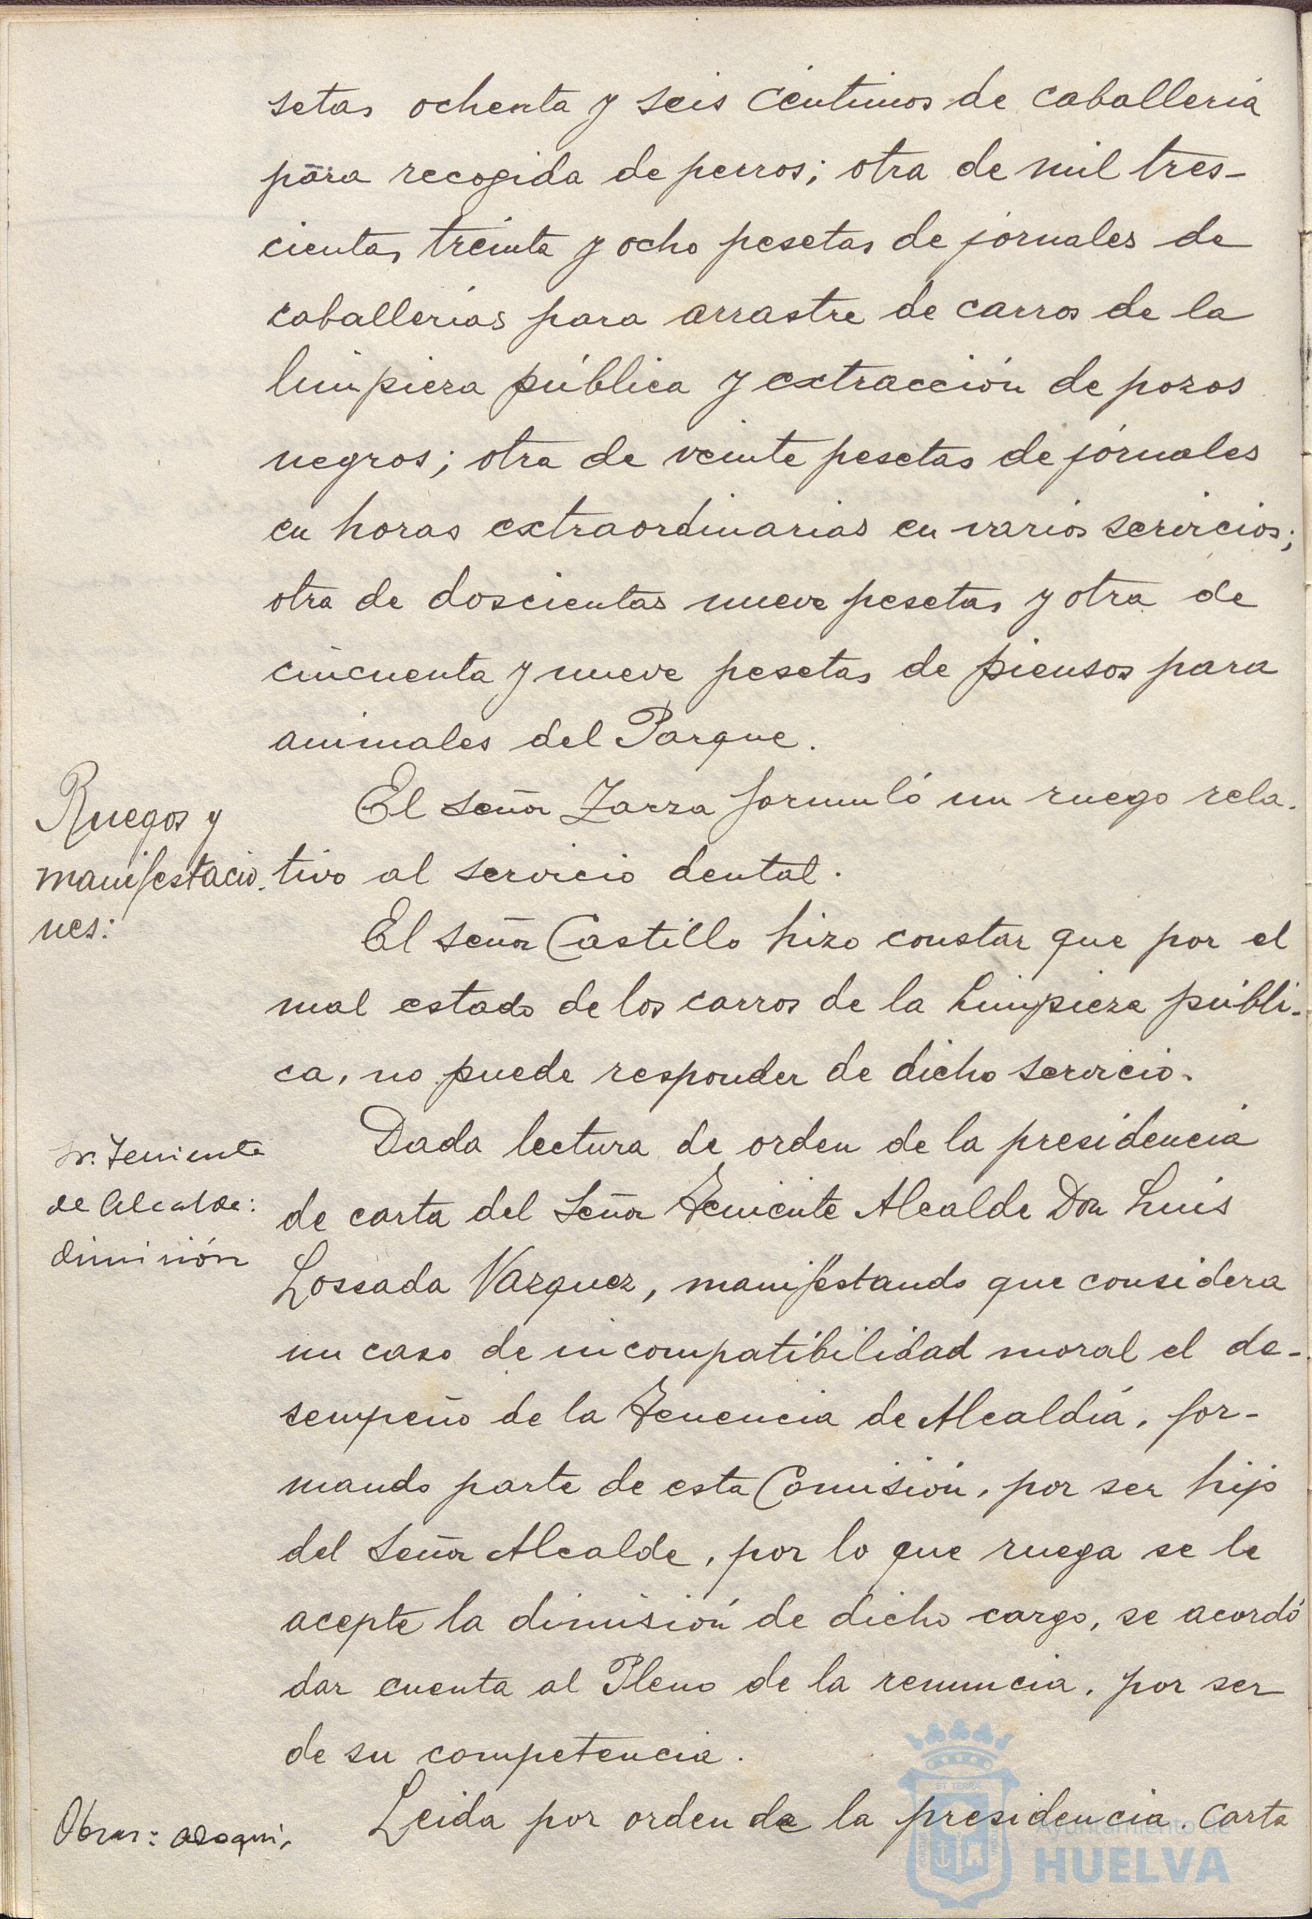 setas ochenta y seis céntimos de caballeria
para recogida de perros; otra de mil tres-
cientas treinta y ocho pesetas de jornales de
caballerias para arrastre de carros de la
limpieza pública y extracción de pozos
negros; otra de veinte pesetas de jornales
en horas extraordinarias en varios servicios;
otra de doscientas nueve pesetas y otra de
cincuenta y nueve pesetas de piensos para
animales del Parque.
Ruegos y
manifestacio-
nes:
El señor Zarza formuló un ruego rela-
tivo al servicio dental.
El señor Castillo hizo constar que por el
mal estado de los carros de la limpieza públi-
ca, no puede responder de dicho servicio.
Sr. Teniente
de Alcalde:
dimisión
Dada lectura de orden de la presidencia
de carta del Señor Teniente Alcalde Don Luis
Lossada Vazquez, manifestando que considera
un caso de incompatibilidad moral el de-
sempeño de la Tenencia de Alcaldía, for-
mando parte de esta Comisión, por ser hijo
del Señor Alcalde, por lo que ruega se le
acepte la dimisión de dicho cargo, se acordó
dar cuenta al Pleno de la renuncia, por ser
de su competencia.
Obras: adoqui-
Leida por orden de la presidencia, carta
Ayuntamiento de
HUELVA